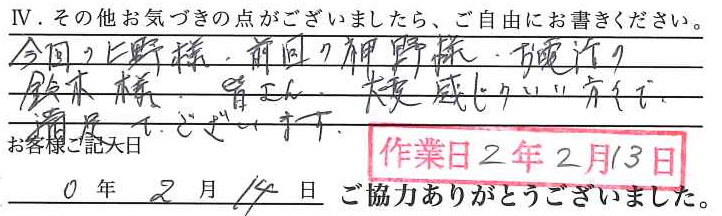 Ⅳ．その他お気づきの点がございましたら、ご自由にお書きください。
今回の上野様．前回の神野様．お電話の
鈴木様．皆さん．大変感じのいい方々で．
満足でございます．
お客様ご記入日
作業日2年2月13日
0年2月14日 ご協力ありがとうございました。